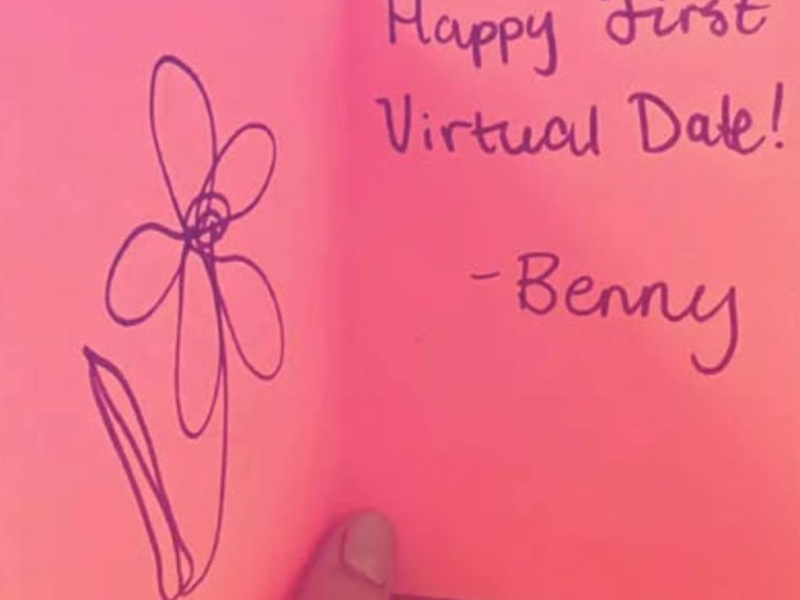 Happy First
Virtual Date!
-Benny